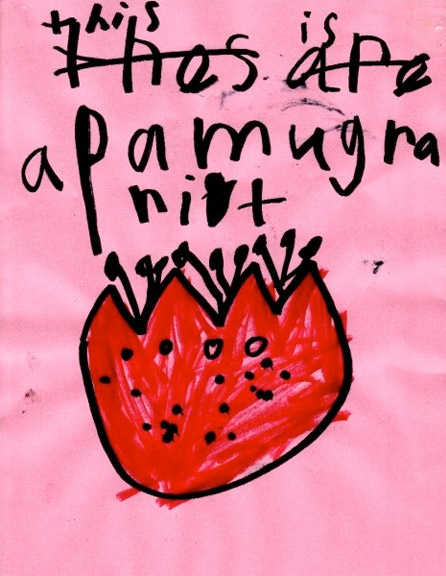 this is
thes are
a pamugra
nit